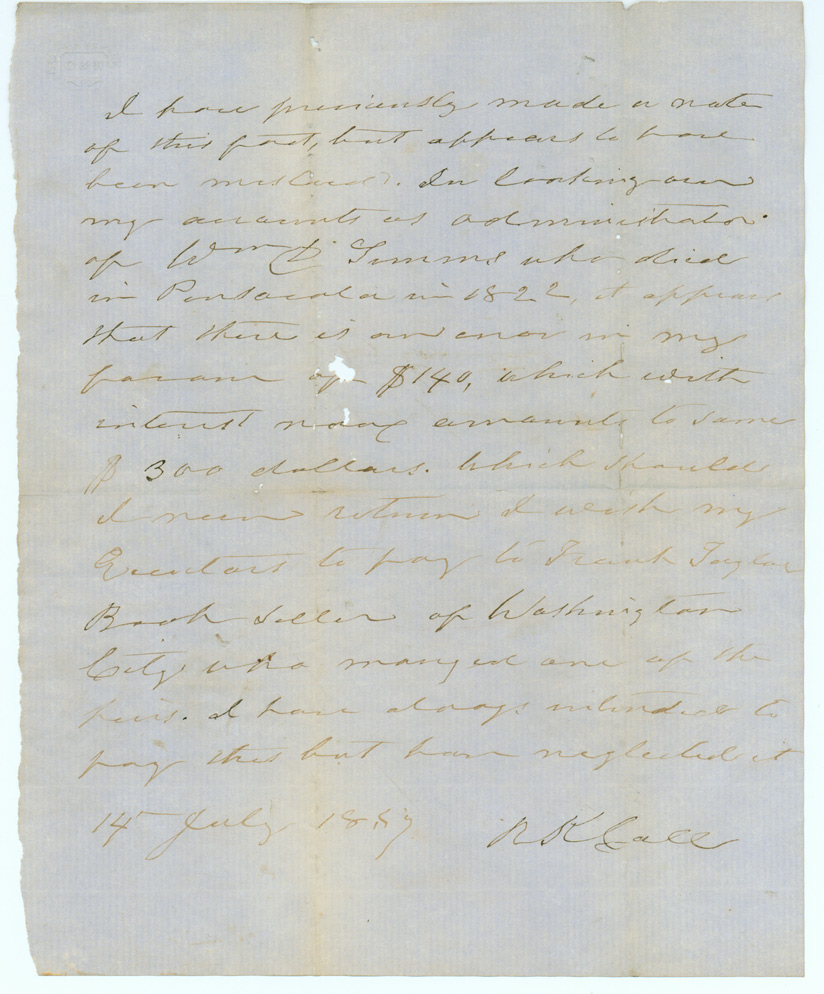 I have previously made a note
of this fact, but appears to have
been mislaid. In looking over
my accounts as administrator
of Wm D Simms who died
in Pensacola in 1822, it appears
that there is an error in my
favour of $140, which with
interest now amounts to some
$300 dollars. Which should
I never return I wish my
Executors to pay to Frank Taylor
Book Seller of Washington
City who married one of the
heirs. I have always intended to
pay this but have neglected it
14 July 1857 R K Call